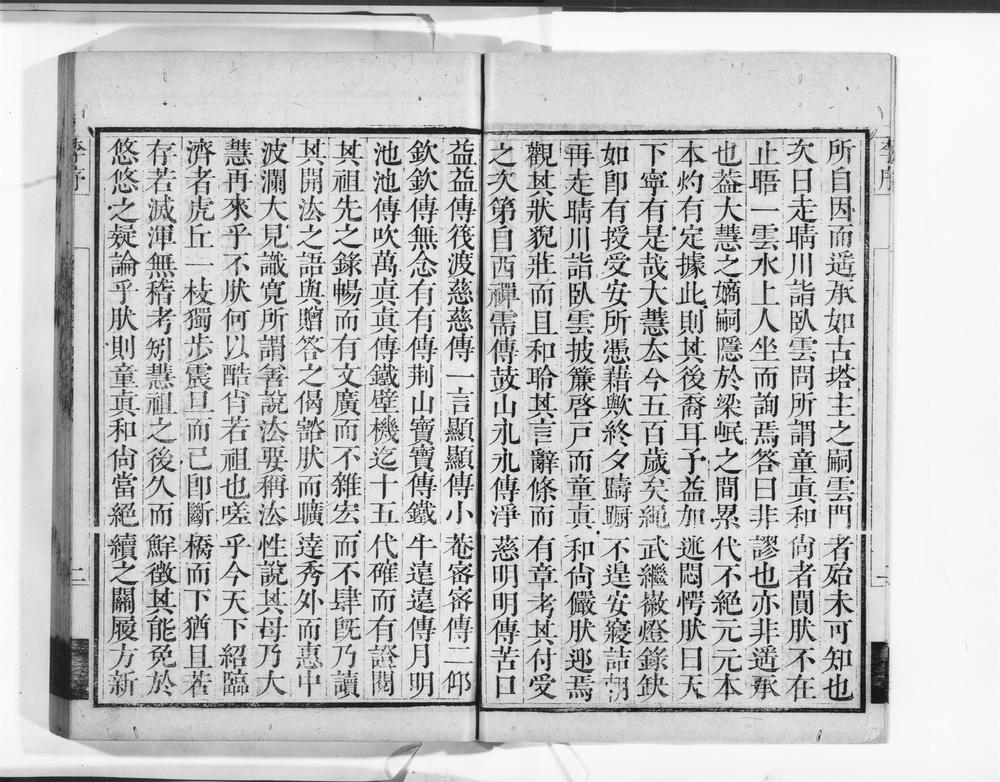 所自因而遥承如古塔主之嗣雲門者殆未可知也
次日走晴川詣臥雲問所謂童真和尚者閴肰不在
止晤一雲水上人坐而詢焉答曰非謬也亦非遥承
也葢大慧之嫡嗣隱於梁岷之間累代不絕元元本
本灼有定據此則其後裔耳予益加逃悶愕肰曰天
下寧有是哉大慧厺今五百歲矣繩武繼嶶燈錄缺
如卽有授受安所憑藉歟終夕躊蹰不遑安寢詰朝
再走晴川詣臥雲披簾啓戶而童真和尚儼肰迎焉
觀其狀貌莊而且和聆其言辭條而有章考其付受
之次第自西禪需傳鼓山永永傳淨慈明明傳苦口
益益傳筏渡慈慈傳一言顯顯傳小菴密密傳二仰
欽欽傳無念有有傳荆山寶寶傳鐵牛遠遠傳月明
池池傳吹萬真真傳鐵壁機迄十五代確而有證閱
其祖先之錄暢而有文廣而不雜宏而不肆旣乃讀
其開法之語與贈答之偈豁肰而曠逹秀外而惠中
波瀾大見識寬所謂害說法要稱法性說其母乃大
慧再來乎不肰何以酷肖若祖也嗟乎今天下紹臨
濟者虎丘一枝獨步震旦而已卽斷橋而下猶且若
存若滅渾無稽考矧慧祖之後久而鮮徵其能免於
悠悠之疑論乎肰則童真和尚當絕續之關履方新
李序
二